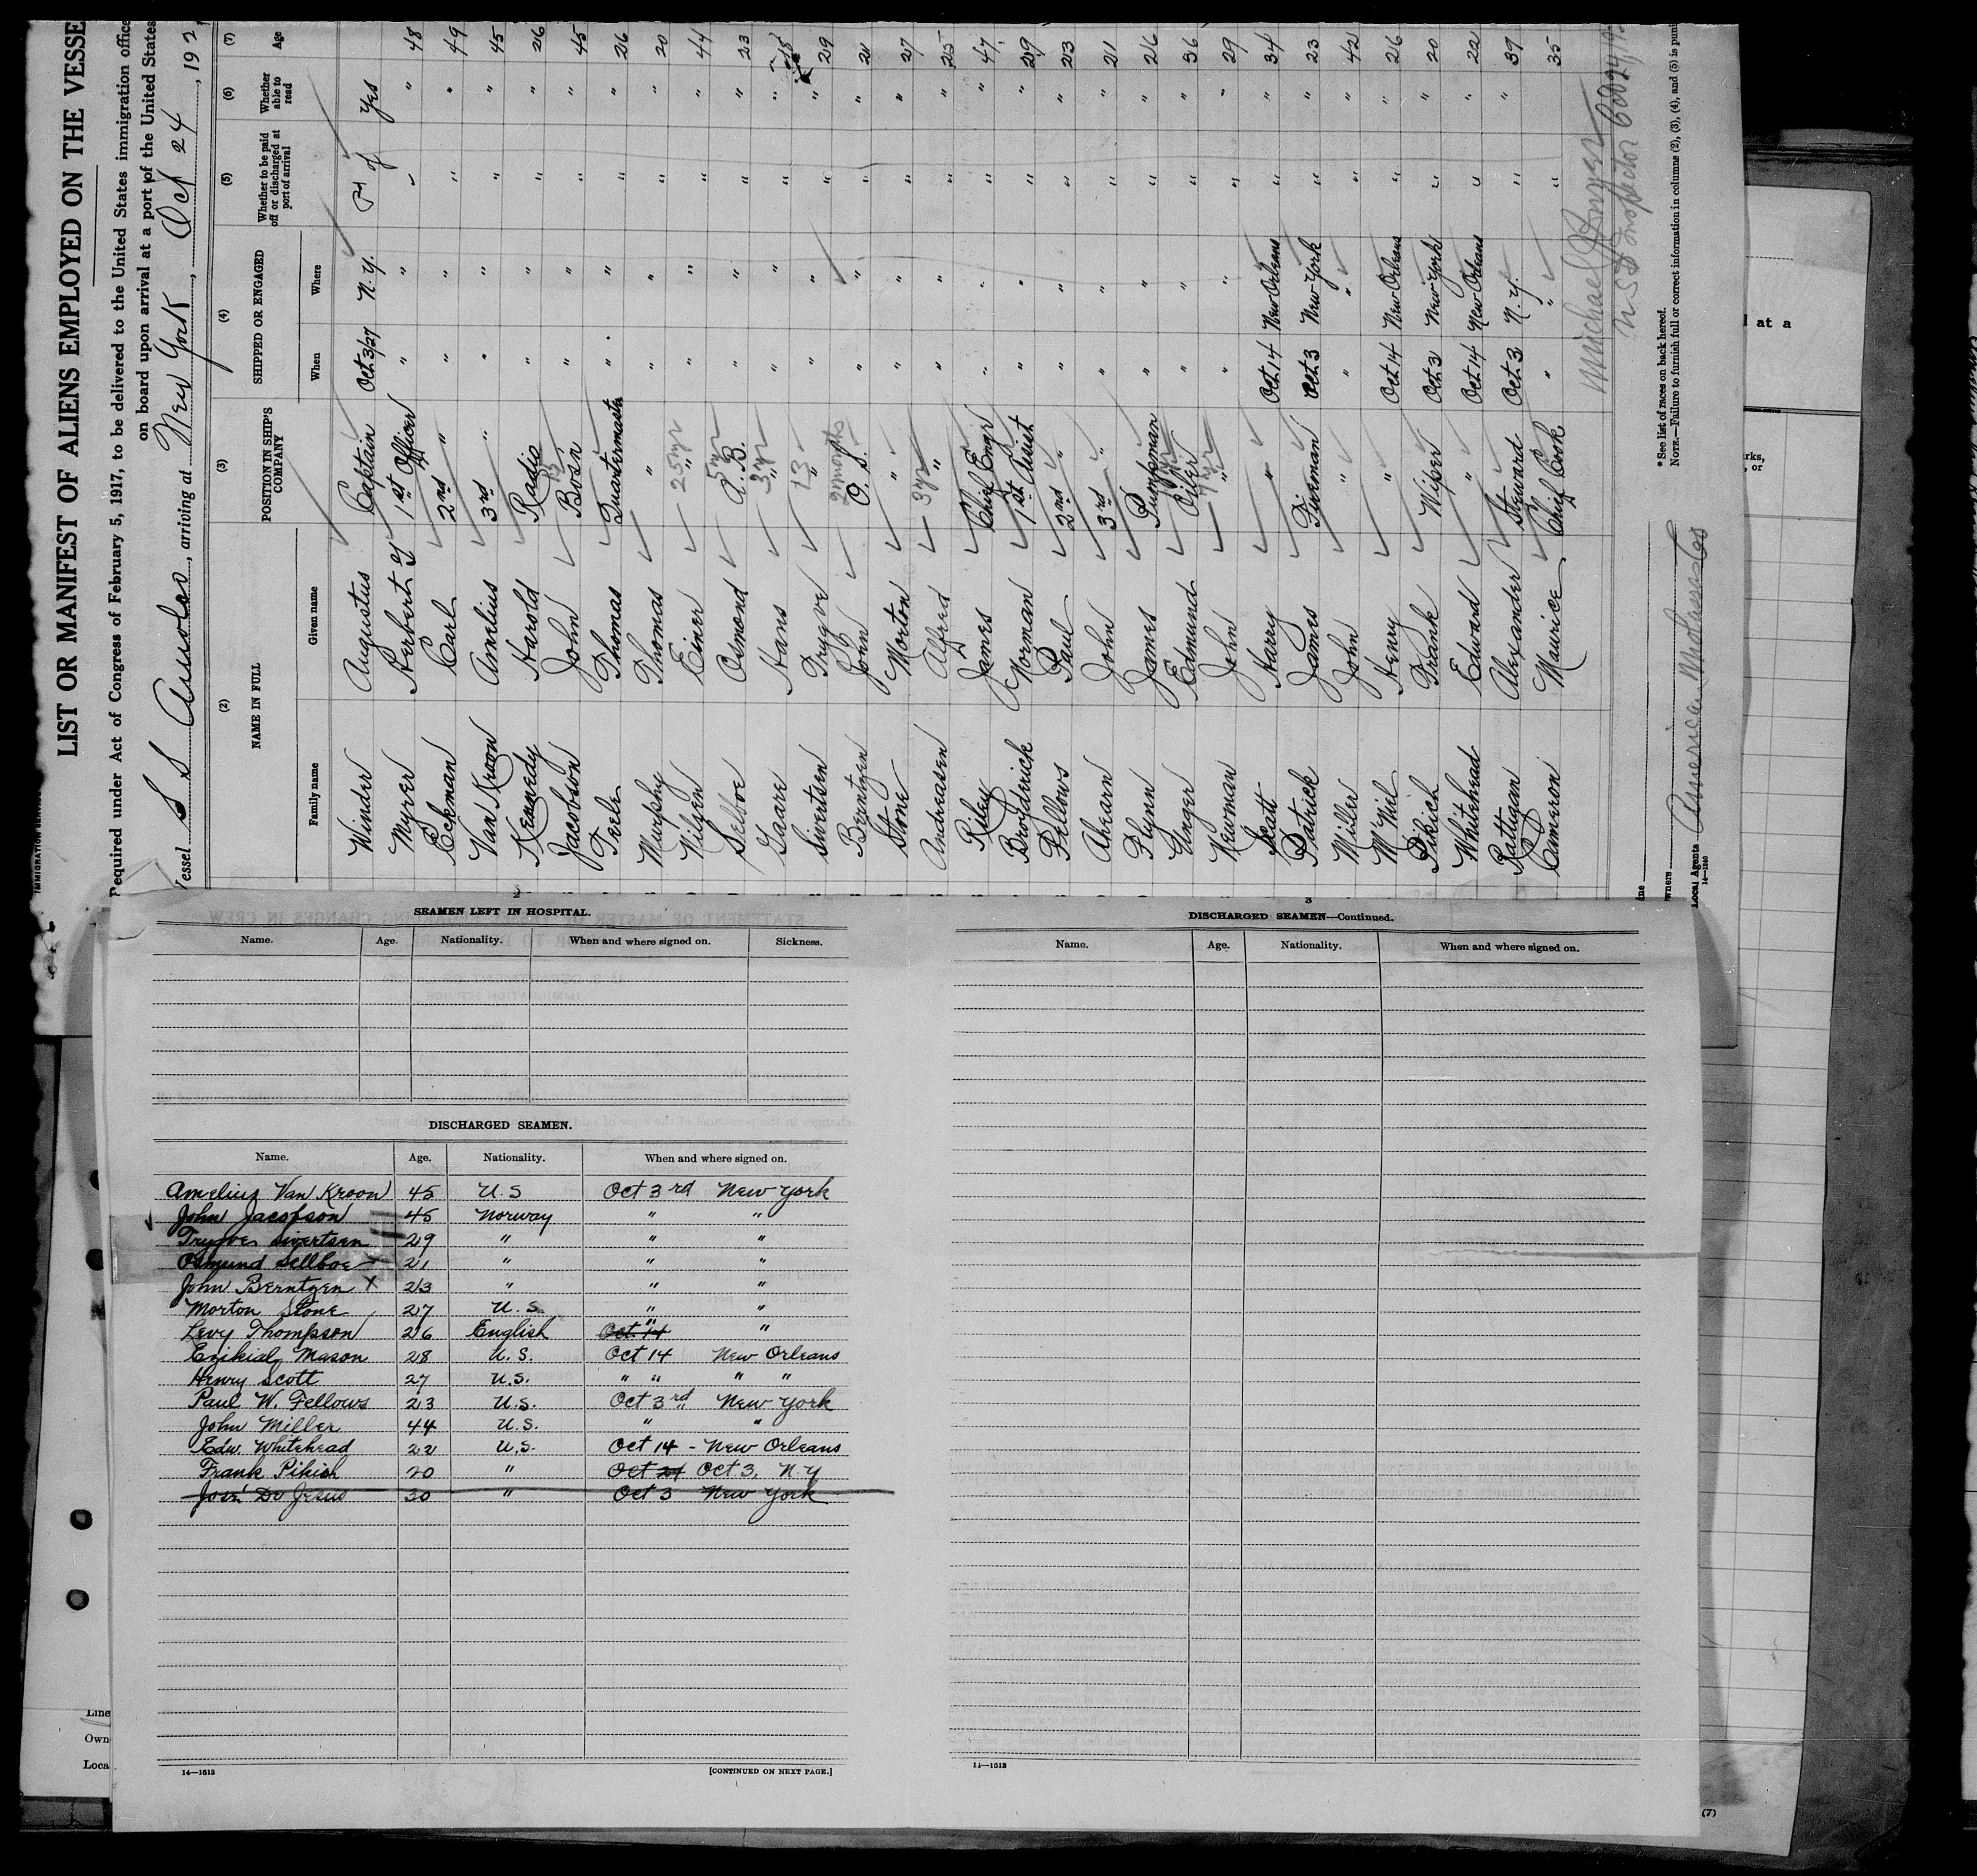 LIST OR MANIFEST OF ALIENS EMPLOYED ON THE VESSE
Required under Act of Congress of February 5, 1917, to be delivered to the United States immigration office
on board upon arrival at a port of the United States
Vessel S S , arriving at New York, Oct 24, 192
(2) (3) (4) (5) (6) (7)
NAME IN FULL POSITION IN SHIP'S COMPANY SHIPPED OR ENGAGED Whether to be paid off or discharged at port of arrival Whether able to read Age
Family name Given name When Where
Winder Augustus Captain Oct 3/27 N. Y. Yes
Myrer Herbert 1st Officer " " " " 48
Eckman Carl 2nd " " " " " 49
Van Kroon Amelius 3rd " " " " " 45
Kennedy Harold Radio " " " " 26
Jacobson John Bosn " " " " 45
Teele Thomas Quartermaster " " " " 26
Murphy Thomas " " " " " 20
Nilsen Einer " 25 yr " " " " 44
Selboe Osmond A. B. 5 yr " " " " 23
Gaare Hans " 3 yr " " " "
Sivertsen Trygve " 13 " " " " 29
Berntzen John O. S. 2 months " " " 21
Stone Morton " " " " " 27
Andreasen Alfred " 3 yr " " " " 25
Riley James Chief Engr " " " " 47
Broydrick Norman 1st Assist " " " " 29
Fellows Paul 2nd " " " " " 23
Ahearn John 3rd " " " " " 21
Flynn James Pumpman " " " " 26
Unger Edmund Oiler " " " " 36
Newman John " " " " " 29
Scott Harry " Oct 14 New Orleans " " 34
Patrick James Fireman Oct 3 New York " " 23
Miller John " " " " " 42
McNiel Henry " Oct 14 New Orleans " " 26
Pikich Frank Wiper Oct 3 New York " " 20
Whitehead Edward " Oct 14 New Orleans " " 22
Rattigan Alexander Steward Oct 3 N. Y. " " 39
Cameron Maurice Chief Cook " " " 35
Owners
Local Agents American Molasses Co
14—1240
* See list of races on back hereof.
NOTE.—Failure to furnish full or correct information in columns (2), (3), (4), and (5) is puni
2
SEAMEN LEFT IN HOSPITAL.
Name. Age. Nationality. When and where signed on. Sickness.
DISCHARGED SEAMEN.
Name. Age. Nationality. When and where signed on.
Amelius Van Kroon 45 U. S Oct 3rd New York
John Jacobson 45 Norway " "
Trygve Sivertsen 29 " " "
Osmund Sellboe 21 " " "
John Berntzen X 23 " " "
Morton Stone 27 U. S. " "
Levy Thompson 26 English Oct. 14 " "
Ezikial Mason 28 U. S. Oct 14 New Orleans
Henry Scott 27 U.S. " " " "
Paul W. Fellows 23 U.S. Oct 3rd New York
John Miller 44 U.S. " "
Edw. Whitehead 22 U.S. Oct 14 - New Orleans
Frank Pikich 20 " Oct 24 Oct 3, N.Y
José De Jesus 30 " Oct 3 New York
14—1613
[CONTINUED ON NEXT PAGE.]
3
DISCHARGED SEAMEN—Continued.
Name. Age. Nationality. When and where signed on.
14—1613
Line
Own
Loca
at a
(7)